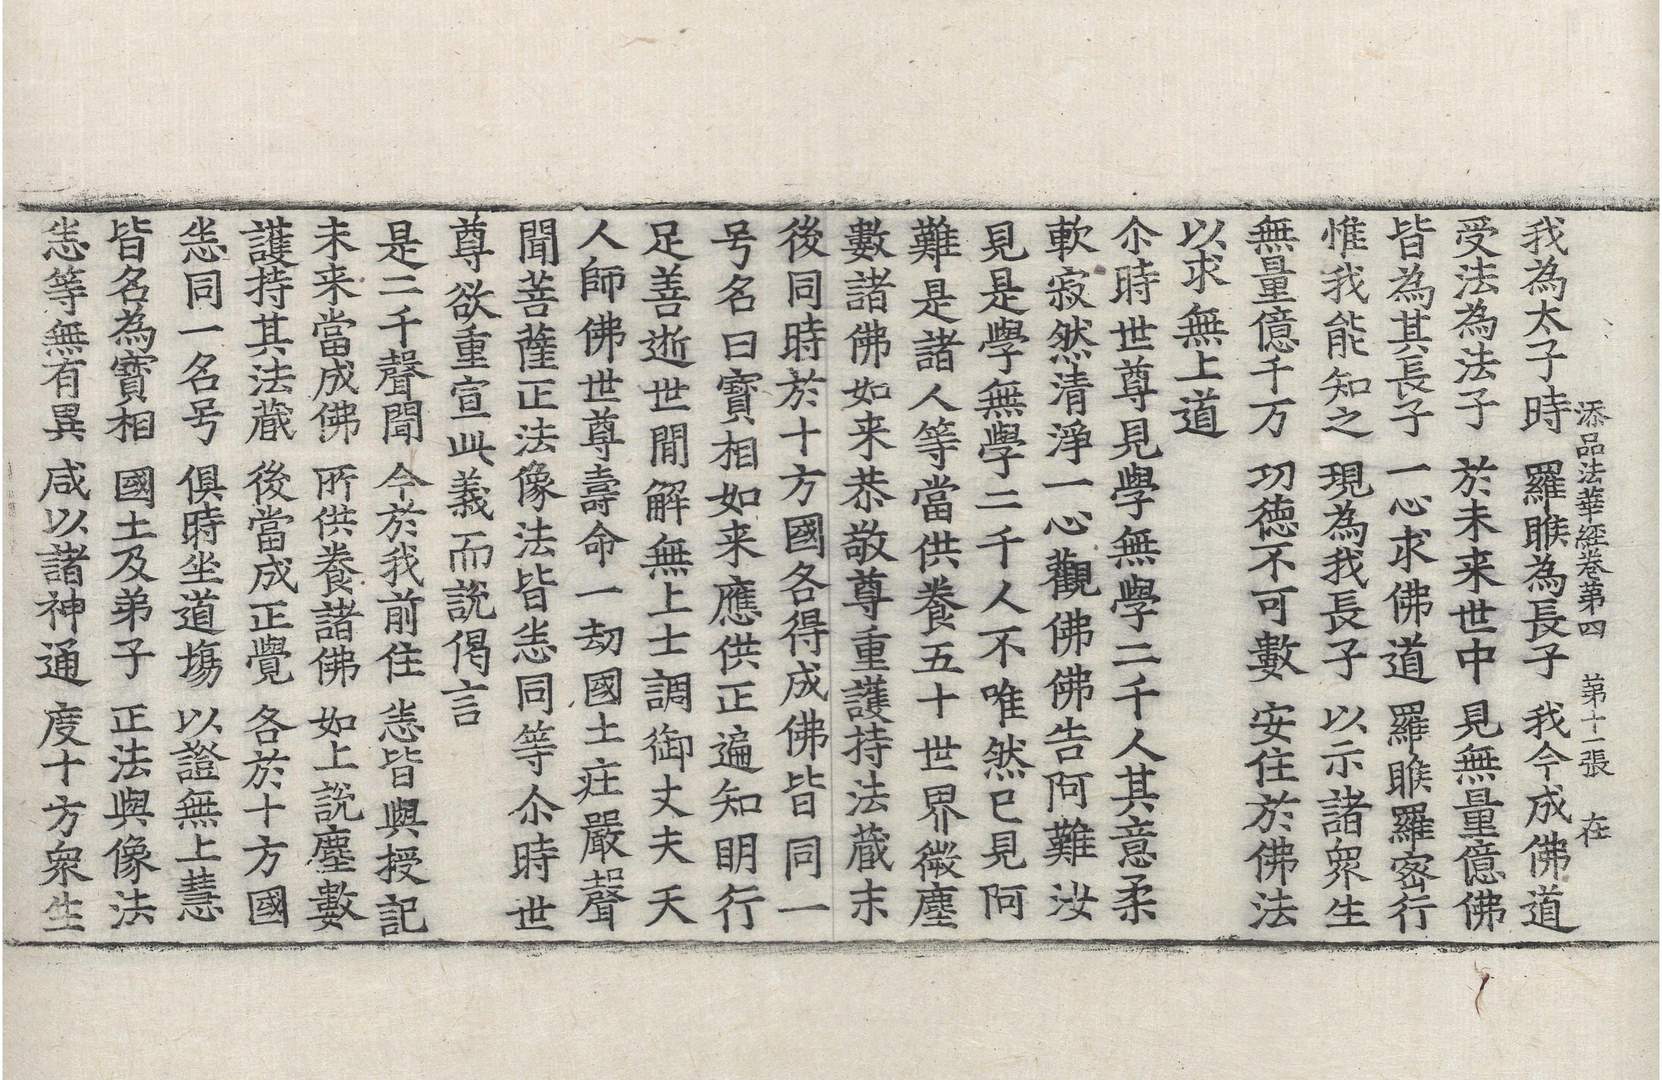 添品法華經卷第四 第十二張 在
我為太子時 羅睺為長子 我今成佛道
受法為法子 於未来世中 見無量億佛
皆為其長子 一心求佛道 羅睺羅密行
惟我能知之 現為我長子 以示諸衆生
無量億千万 功徳不可數 安住於佛法
以求無上道
尒時世尊見學無學二千人其意柔
軟寂然清淨一心觀佛佛告阿難汝
見是學無學二千人不唯然已見阿
難是諸人等當供養五十世界微塵
數諸佛如来恭敬尊重護持法蔵末
後同時於十方國各得成佛皆同一
号名曰寳相如来應供正遍知明行
足善逝世間解無上士調御丈夫天
人師佛世尊壽命一劫國土庄嚴聲
聞菩薩正法像法皆悉同等尒時世
尊欲重宣此義而説偈言
是二千聲聞 今於我前住 悉皆與授記
未来當成佛 所供養諸佛 如上説塵數
護持其法蔵 後當成正覺 各於十方國
悉同一名号 俱時坐道場 以證無上慧
皆名為寳相 國土及弟子 正法與像法
悉等無有異 咸以諸神通 度十方衆生